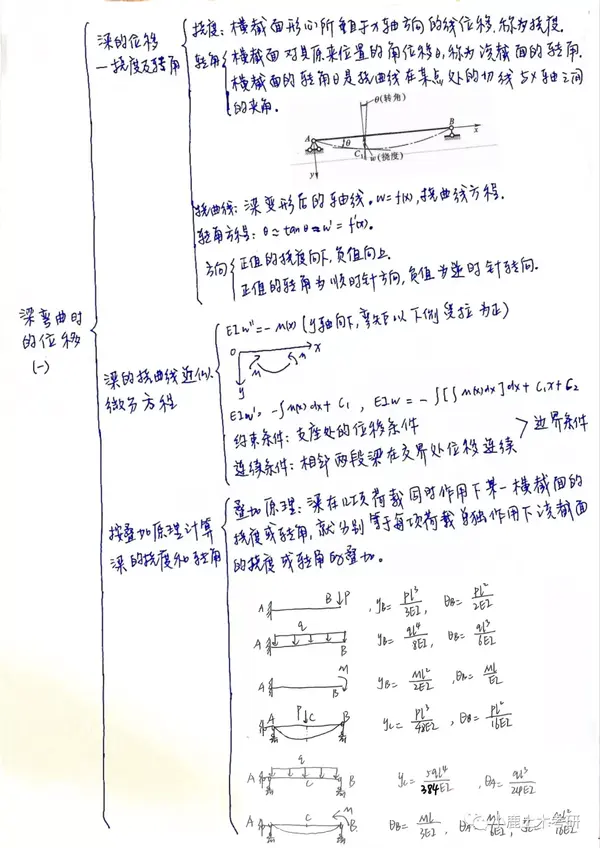 梁弯曲时
的位移
(一)
梁的位移
—挠度及转角
挠度：横截面形心所垂直于x轴方向的线位移，称为挠度．
转角 横截面对其原来位置的角位移θ，称为该截面的转角．
横截面的转角θ是挠曲线在某点处的切线与x轴之间
的夹角．
θ(转角)
A
θ
B
x
C₁
w(挠度)
y
挠曲线：梁变形后的轴线。w=f(x)，挠曲线方程．
转角方程：θ≈tanθ≈w'=f'(x)．
方向 正值的挠度向下，负值向上．
正值的转角为顺时针方向，负值为逆时针转向．
梁的挠曲线近似
微分方程
EIw''=-M(x)(y轴向下，弯矩以下侧受拉为正)
O
x
M
M
y
EIw'=-∫M(x)dx+C₁，EIw=-∫[∫M(x)dx]dx+C₁x+C₂
约束条件：支座处的位移条件
连续条件：相邻两段梁在交界处位移连续
边界条件
按叠加原理计算
梁的挠度和转角
叠加原理：梁在几项荷载同时作用下某一横截面的
挠度或转角，就分别等于每项荷载单独作用下该截面
的挠度或转角的叠加。
A B P yB=Pl³/3EI，θB=Pl²/2EI
A q B yB=ql⁴/8EI，θB=ql³/6EI
A B M yB=Ml²/2EI，θB=Ml/EI
A P C B yC=Pl³/48EI，θB=Pl²/16EI
A q C B yC=5ql⁴/384EI，θA=ql³/24EI
A C M B θB=Ml/3EI，θA=Ml/6EI，yC=Ml²/16EI
小鹿土木考研